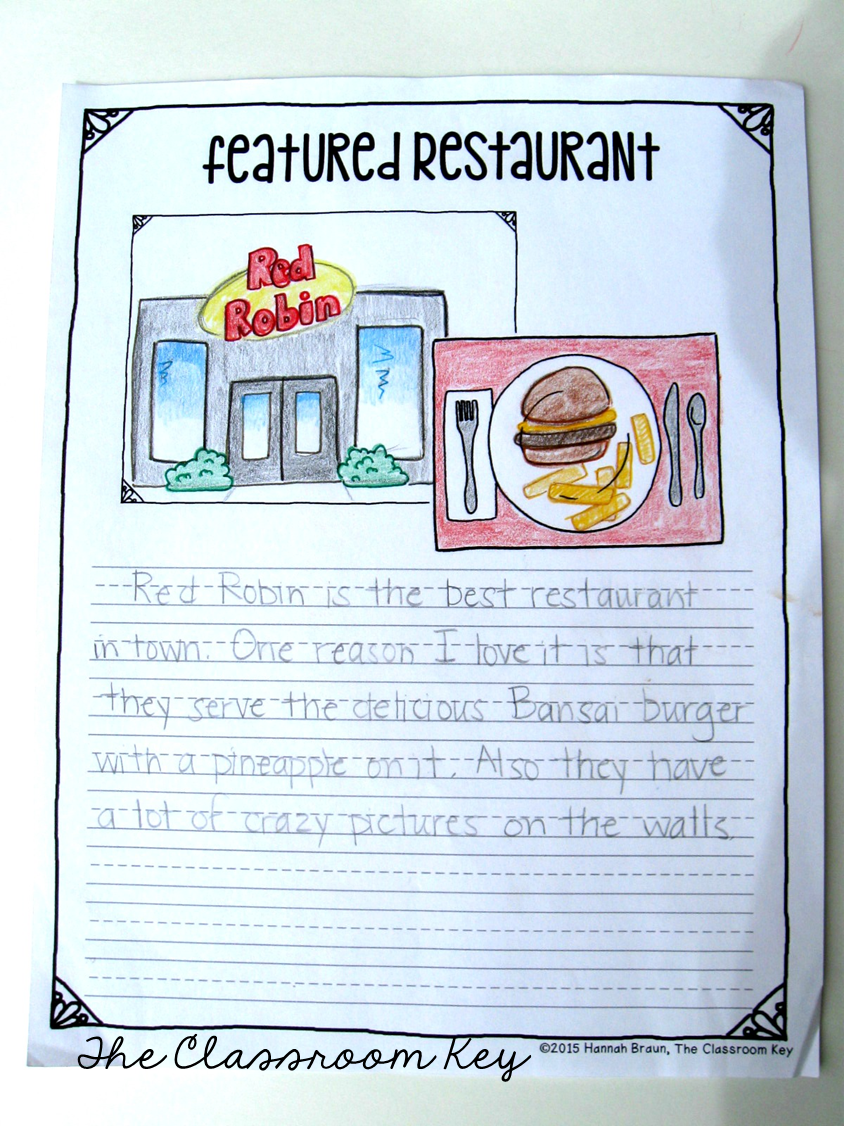 featured Restaurant
Red
Robin
Red Robin is the best restaurant
in town. One reason I love it is that
they serve the delicious Bansai burger
with a pineapple on it. Also they have
a lot of crazy pictures on the walls.
The Classroom Key
©2015 Hannah Braun, The Classroom Key